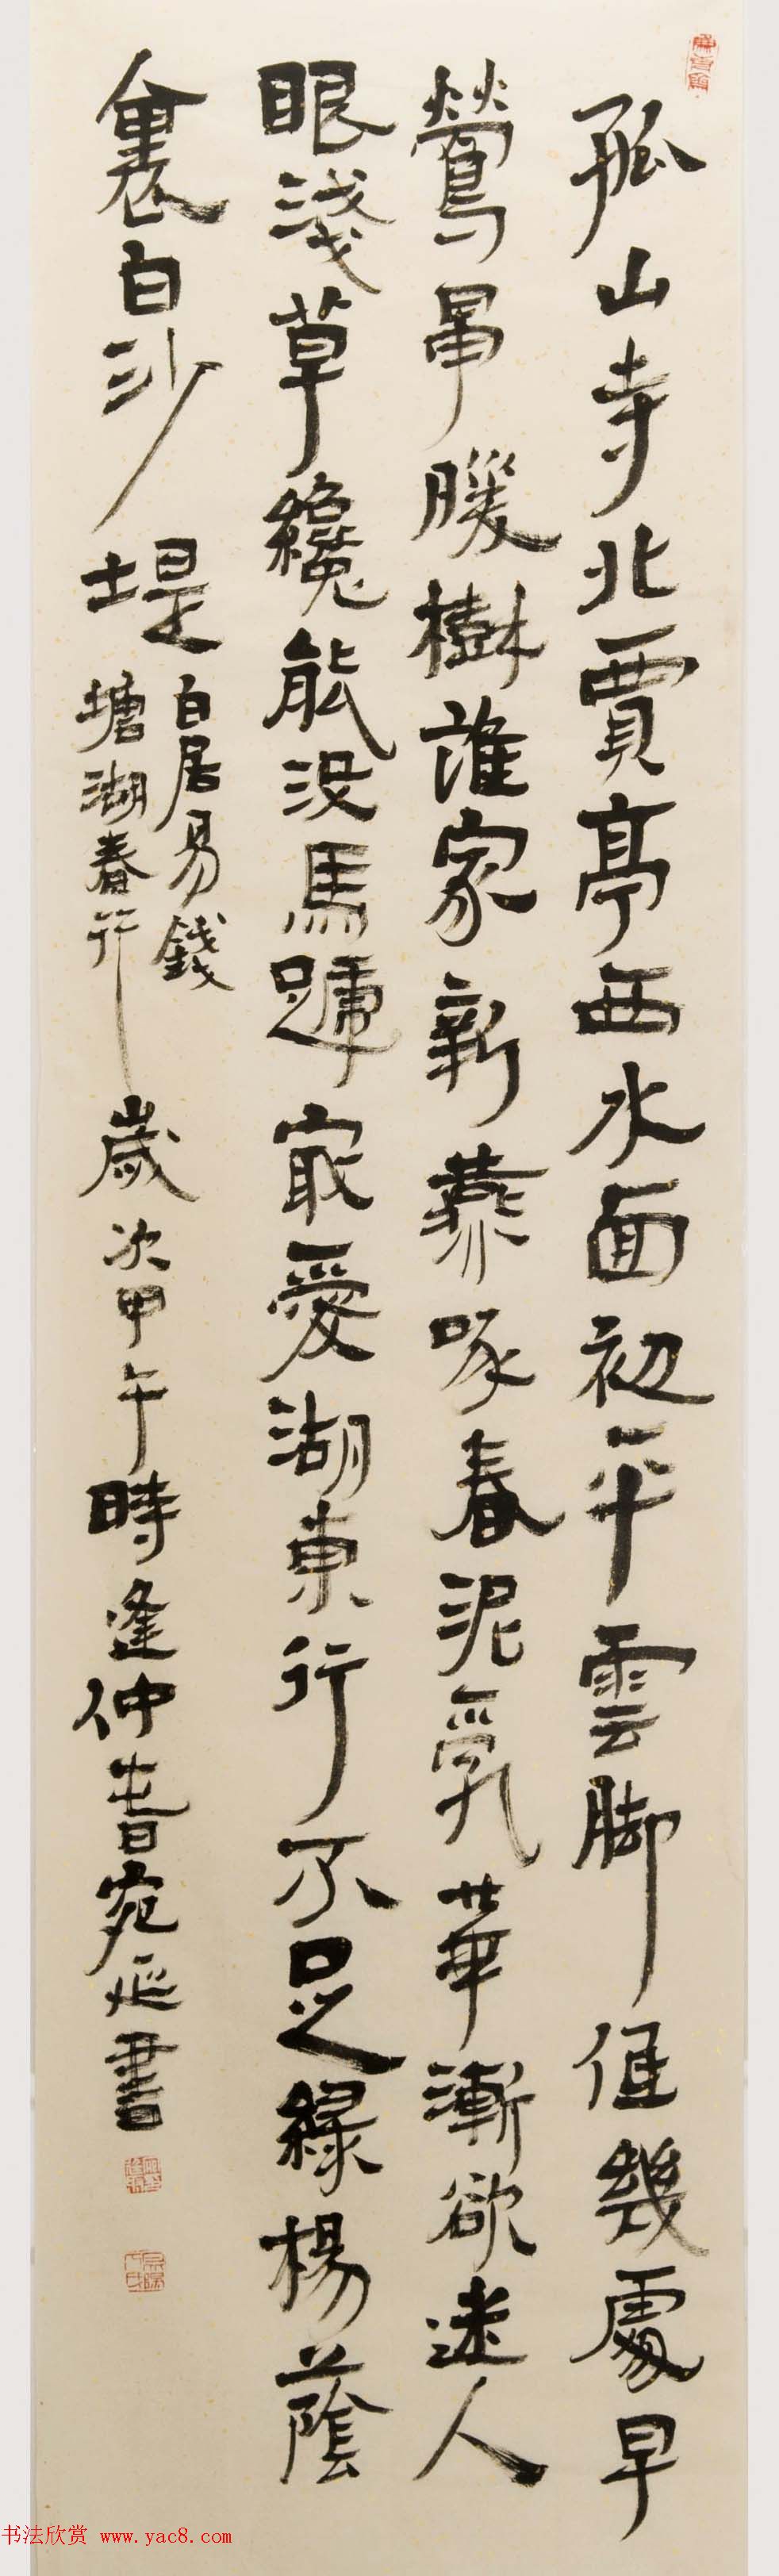 孤山寺北賈亭西水面初平雲脚低幾處早
鶯爭暖樹誰家新燕啄春泥亂華漸欲迷人
眼淺草纔能沒馬蹏冣愛湖東行不足綠楊蔭
裏白沙堤
白居易錢
塘湖春行
歲次甲午時逢仲春宛延書
书法欣赏 www.yac8.com